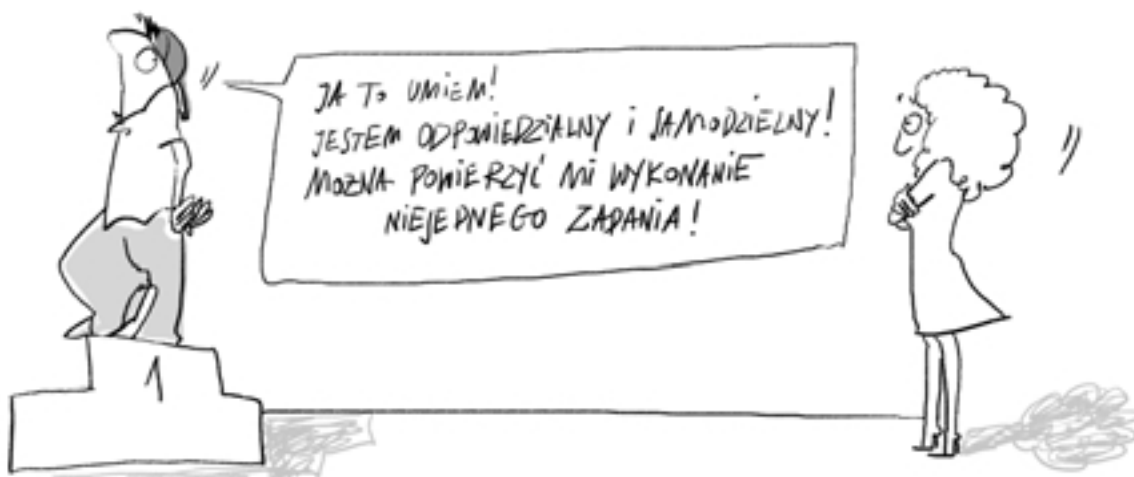 JA TO UMIEM!
JESTEM ODPOWIEDZIALNY i SAMODZIELNY!
MOŻNA POWIERZYĆ MI WYKONANIE
NIEJEDNEGO ZADANIA!
1